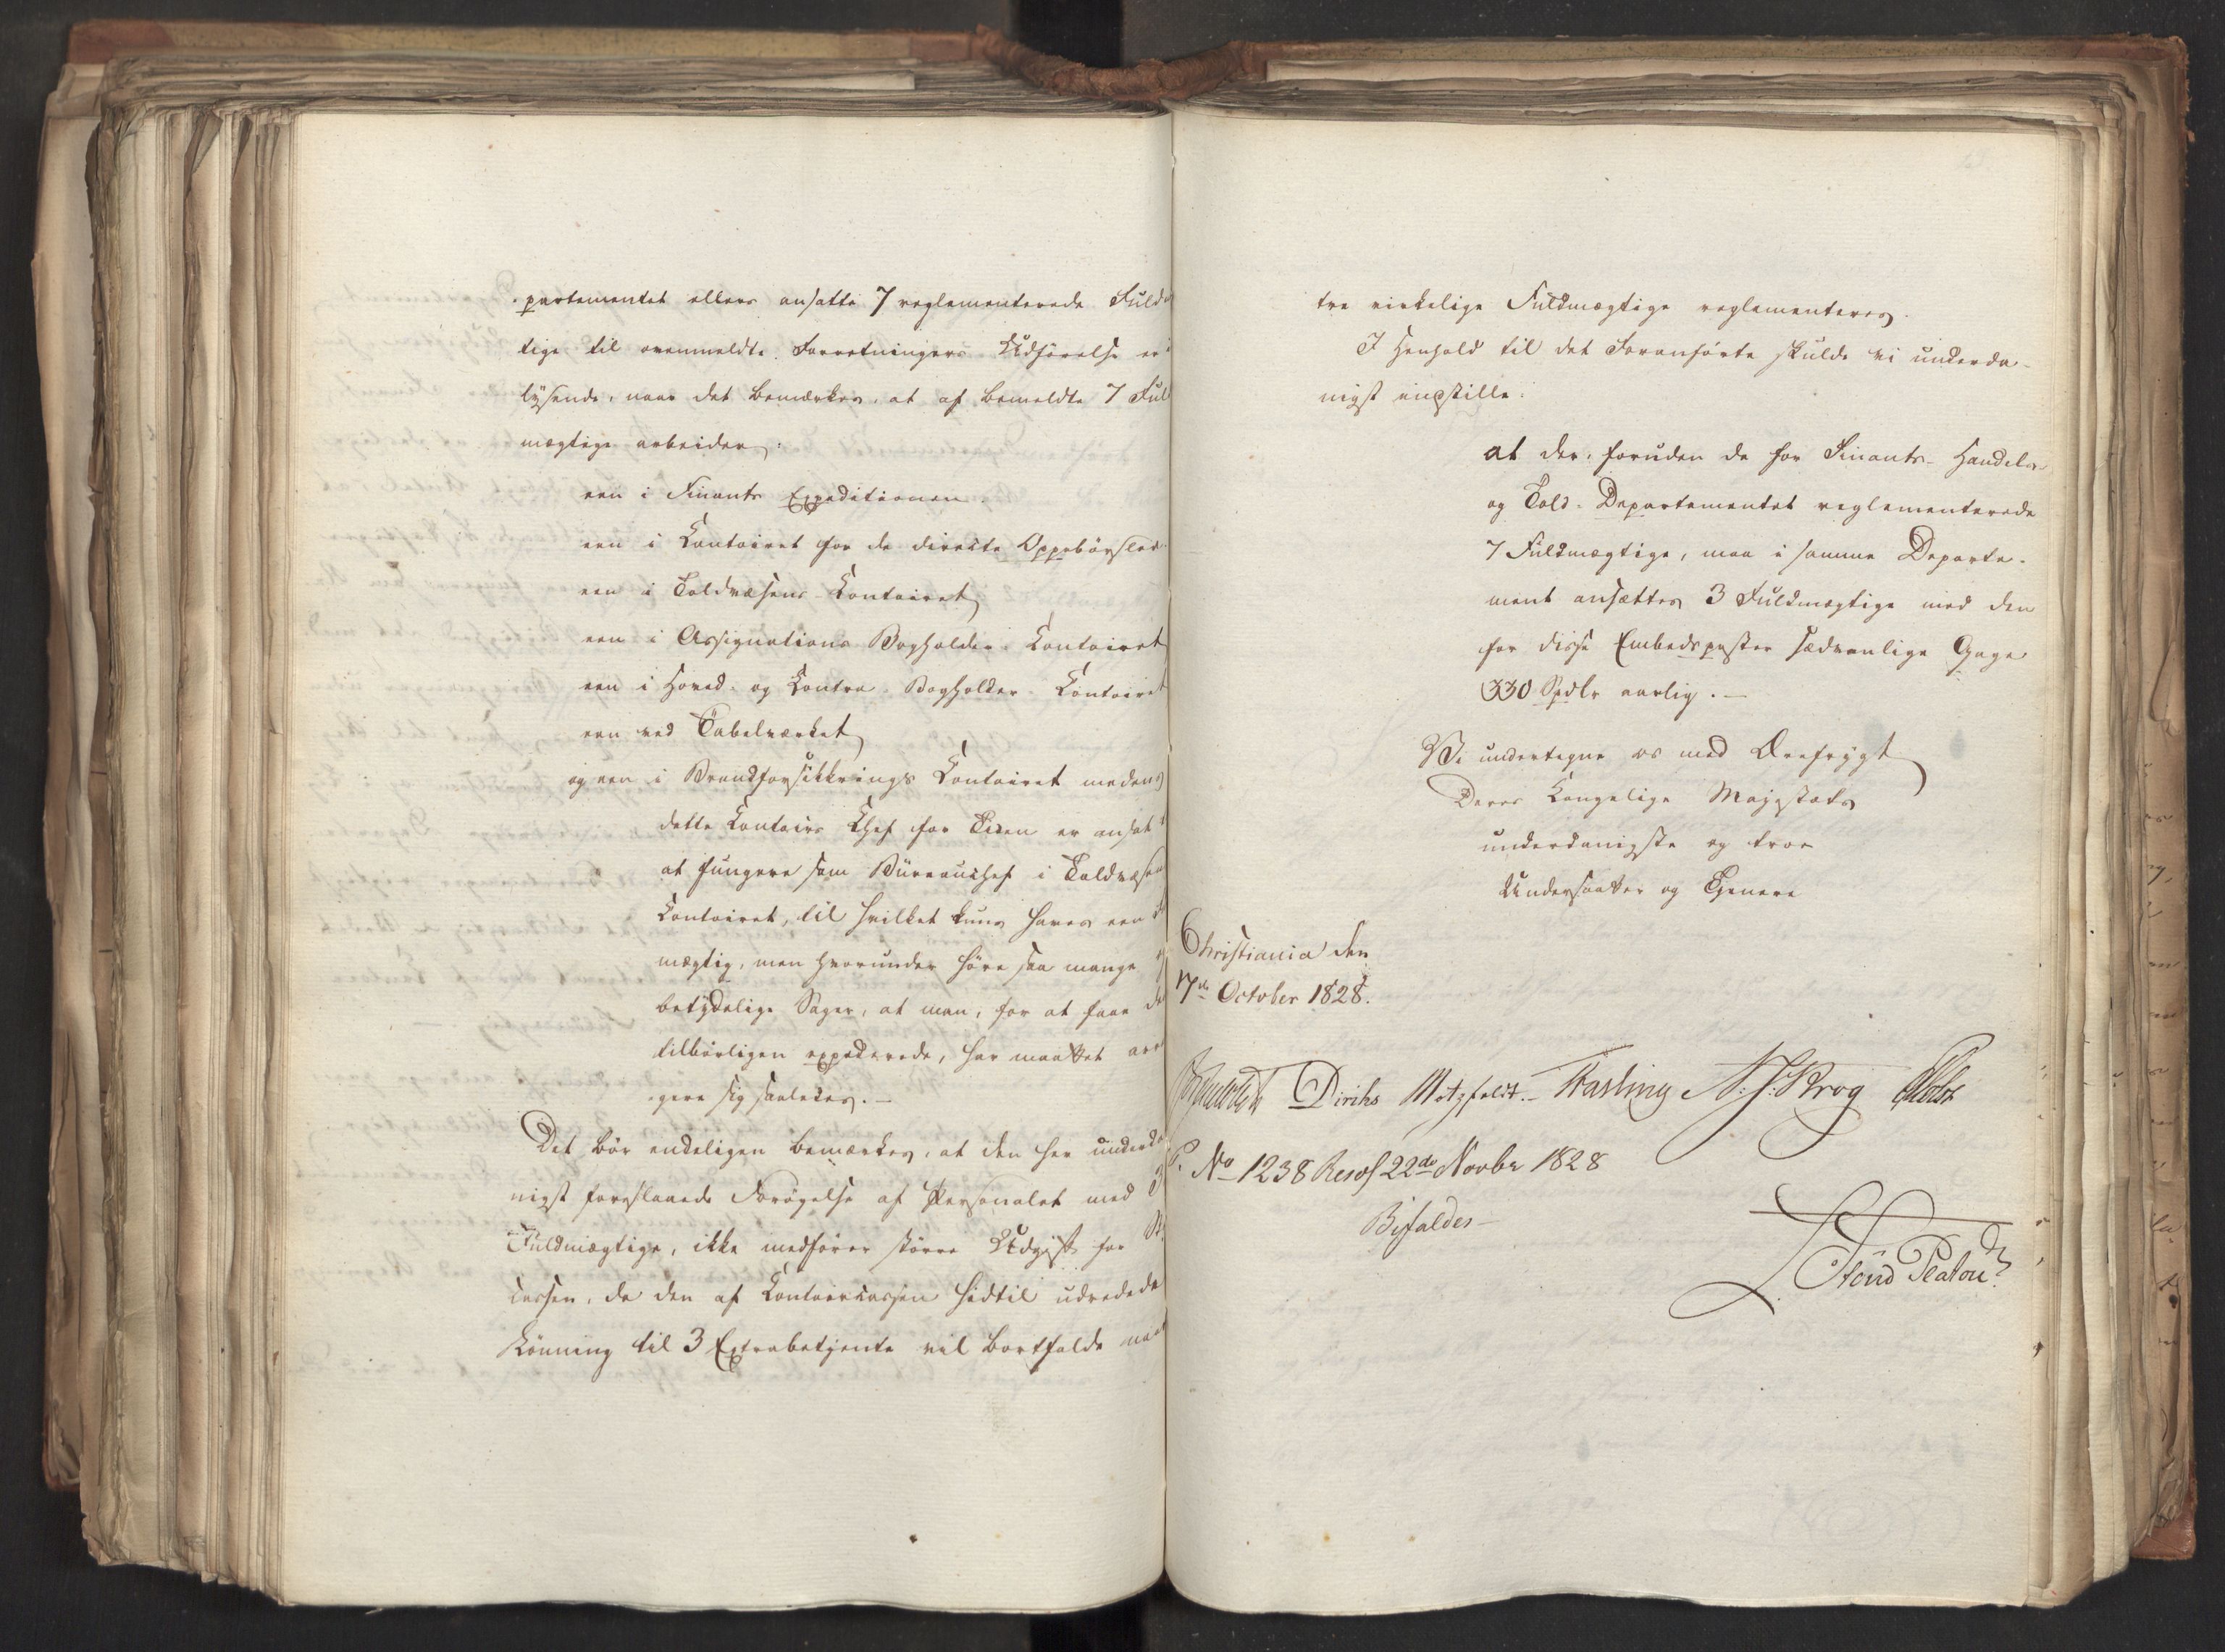 partementet ellers ansatte 7 reglementerede Fuld
tige til ovenmeldte Forretningers Udførelse er
lysende, naar det bemærkes, at af bemeldte 7 Ful
mægtige arbeider:
een i Finants Expeditionen
een i Contoiret for de directe Oppebørsler
een i Toldvæsens-Contoiret
een i Assignations Bogholder-Contoiret
een i Hoved- og Contra-Bogholder-Contoiret
een ved Tabelværket
og een i Brandforsikkrings Contoiret medens
dette Contoirs Chef for Tiden er ansat
at fungere som Büreauchef i Toldvæsen
Contoiret, til hvilket kuns haves een
mægtig, men hvorunder høre saa mange
betydelige Sager, at man, for at faae de
tilbørligen expederede, har maattet arr
gere sig saaledes.-
Det bør endeligen bemærkes, at den her underda
nigst foreslaaede Forøgelse af Personalet med 3
Fuldmægtige, ikke medfører større Udgift for St
cassen, da den af Contoircassen hidtil udredede
Lønning til 3 Extrabetjente vil bortfalde naar
tre virkelige Fuldmægtige reglementeres.
I Henhold til det Foranførte skulde vi underda-
nigst indstille:
at der, foruden de for Finants- Handels-
og Told-Departementet reglementerede
7 Fuldmægtige, maa i samme Departe-
ment ansættes 3 Fuldmægtige med den
for disse Embedsposter sædvanlige Gage
330 Spdlr aarlig.-
Vi undertegne os med Ærefrygt
Deres Kongelige Majestæts
underdanigste og troe
Undersaatter og Tjenere
Christiania den
17de October 1828.
Diriks Motzfeldt.- Fasting N. J. Krog Holst
No 1238 Resol 22de Novbr 1828
Bifaldes-
Stoud Platou